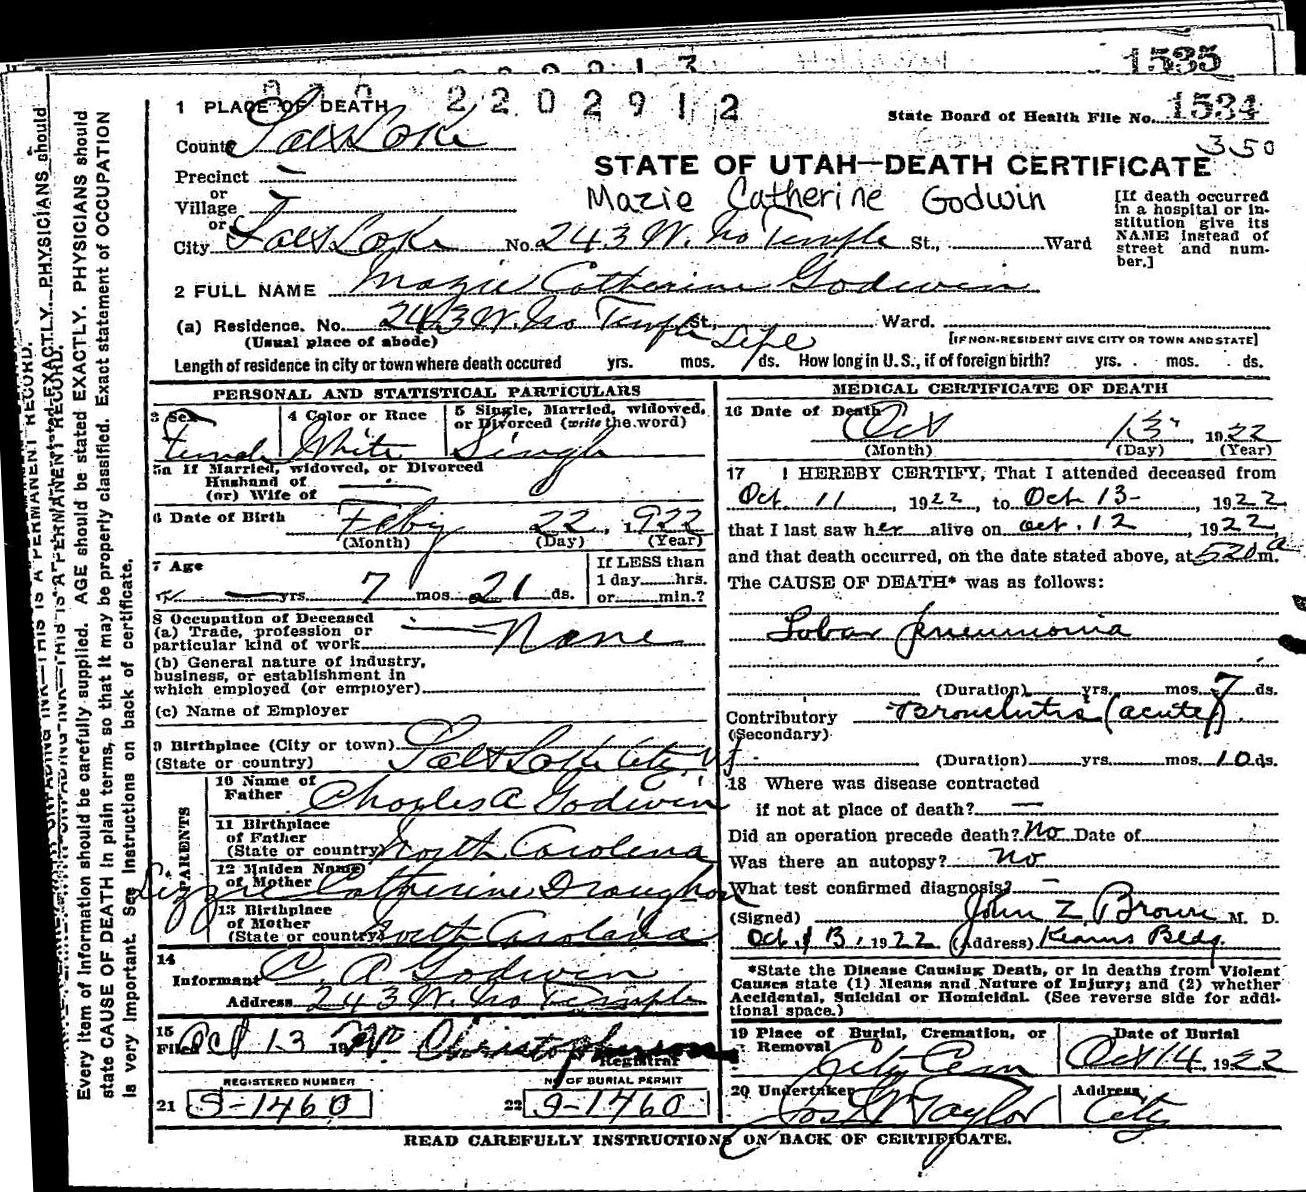 1535
2202912
1 PLACE OF DEATH
State Board of Health File No. 1534
350
County Salt Lake
STATE OF UTAH—DEATH CERTIFICATE
Precinct —
or
Village —
or
Mazie Catherine Godwin
[If death occurred in a hospital or institution give its NAME instead of street and number.]
City Salt Lake No. 243 W. No Temple St., Ward
2 FULL NAME Mazie Catherine Godwin
(a) Residence. No. 243 W. No Temple St., Ward.
(Usual place of abode) [IF NON-RESIDENT GIVE CITY OR TOWN AND STATE]
Life
Length of residence in city or town where death occured yrs. mos. ds. How long in U. S., if of foreign birth? yrs. mos. ds.
PERSONAL AND STATISTICAL PARTICULARS
3 Sex Female
4 Color or Race White
5 Single, Married, widowed, or Divorced (write the word) Single
5a If Married, widowed, or Divorced
Husband of
(or) Wife of —
6 Date of Birth Feby 22, 1922
(Month) (Day) (Year)
7 Age — yrs. 7 mos. 21 ds.
If LESS than
1 day hrs.
or min.?
8 Occupation of Deceased
(a) Trade, profession or
particular kind of work None
(b) General nature of industry,
business, or establishment in
which employed (or employer)
(c) Name of Employer
9 Birthplace (City or town) Salt Lake City, Ut
(State or country)
PARENTS
10 Name of Father Charles A Godwin
11 Birthplace
of Father
(State or country) North Carolina
12 Maiden Name
of Mother Lizzie Catherine Draughon
13 Birthplace
of Mother
(State or country) North Carolina
14
Informant C. A. Godwin
Address 243 W. No Temple
15
Filed Oct 13 19 Christopherson
Registrar
REGISTERED NUMBER
21 S-1460
NO OF BURIAL PERMIT
22 9-1460
MEDICAL CERTIFICATE OF DEATH
16 Date of Death Oct 13, 1922
(Month) (Day) (Year)
17 I HEREBY CERTIFY, That I attended deceased from
Oct. 11, 1922, to Oct 13-, 1922
that I last saw her alive on Oct. 12, 1922,
and that death occurred, on the date stated above, at 520 a m.
The CAUSE OF DEATH* was as follows:
Lobar pneumonia
(Duration) yrs. mos. 7 ds.
Contributory Bronchitis (acute)
(Secondary)
(Duration) yrs. mos. 10 ds.
18 Where was disease contracted
if not at place of death? —
Did an operation precede death? No Date of
Was there an autopsy? no
What test confirmed diagnosis? —
(Signed) John Z. Brown M. D.
Oct. 13, 1922 (Address) Kearns Bldg.
*State the Disease Causing Death, or in deaths from Violent
Causes state (1) Means and Nature of Injury; and (2) whether
Accidental, Suicidal or Homicidal. (See reverse side for addi-
tional space.)
19 Place of Burial, Cremation, or
Removal City Cem
Date of Burial
Oct 14, 1922
20 Undertaker Jos W Taylor
Address City
READ CAREFULLY INSTRUCTIONS ON BACK OF CERTIFICATE.
Every item of information should be carefully supplied. AGE should be stated EXACTLY. PHYSICIANS should
state CAUSE OF DEATH in plain terms, so that it may be properly classified. Exact statement of OCCUPATION
is very important. See instructions on back of certificate.